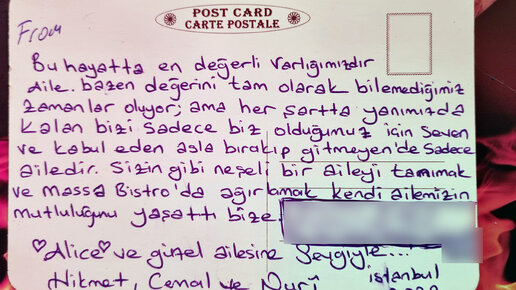 POST CARD
CARTE POSTALE
From
Bu hayatta en değerli varlığımızdır
aile. bazen değerini tam olarak bilemediğimiz
zamanlar oluyor; ama her şartta yanımızda
kalan bizi sadece biz olduğumuz için seven
ve kabul eden asla bırakıp gitmeyen'de sadece
ailedir. Sizin gibi neşeli bir aileyi tanımak
ve Massa Bistro'da ağırlamak kendi ailemizin
mutluluğunu yaşattı bize
♡Alice♡ ve güzel ailesine Sevgiyle...
Hikmet, Cemal ve Nuri istanbul